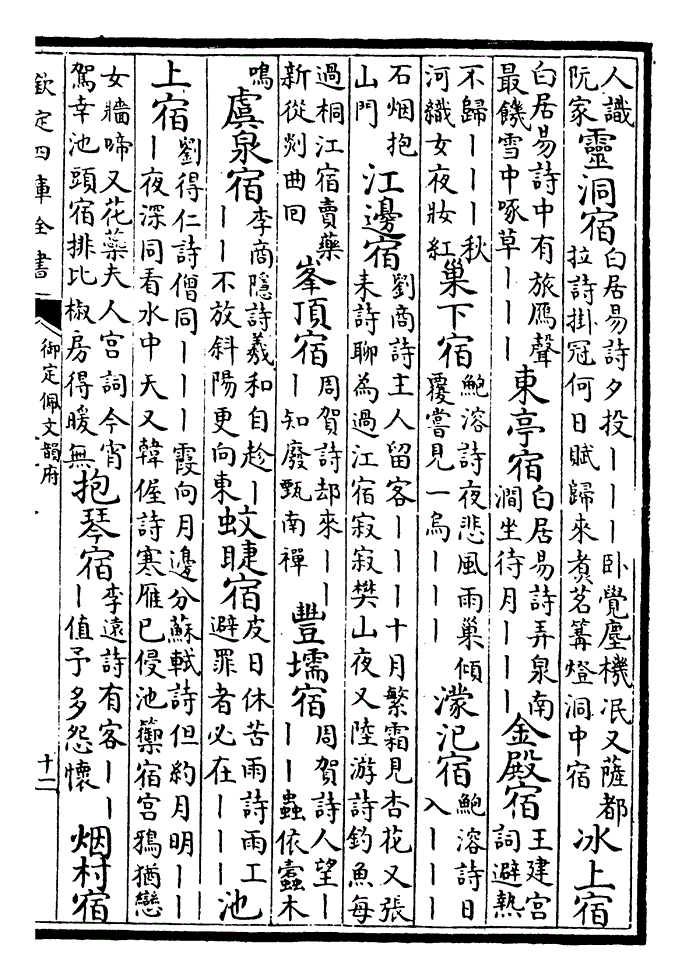 人識阮家靈洞宿白居易詩夕投丨丨丨卧覺塵機泯又薩都拉詩掛冠何日賦歸來煮茗篝燈洞中宿冰上宿
白居易詩中有旅鴈聲最饑雪中啄草丨丨丨東亭宿白居易詩弄泉南澗坐待月丨丨丨金殿宿王建宮詞避熱
不歸丨丨丨秋河織女夜妝紅巢下宿鮑溶詩夜悲風雨巢傾覆嘗見一烏丨丨丨濛汜宿鮑溶詩日入丨丨丨
石烟抱山門江邊宿劉商詩主人留客丨丨丨十月繁霜見杏花又張耒詩聊為過江宿寂寂樊山夜又陸游詩釣魚每
過桐江宿賣藥新從剡曲回峯頂宿周賀詩却來丨丨丨知廢甑南禪豐壖宿周賀詩人望丨丨丨蟲依蠧木
鳴虞泉宿李商隱詩羲和自趁丨丨丨不放斜陽更向東蚊睫宿皮日休苦雨詩雨工避罪者必在丨丨丨池
上宿劉得仁詩僧同丨丨丨霞向月邊分蘇軾詩但約月明丨丨丨夜深同看水中天又韓偓詩寒雁已侵池籞宿宮鴉猶戀
女牆啼又花蘂夫人宮詞今宵駕幸池頭宿排比椒房得暖無抱琴宿李遠詩有客丨丨丨值予多怨懷烟村宿
欽定四庫全書
御定佩文韻府
十二